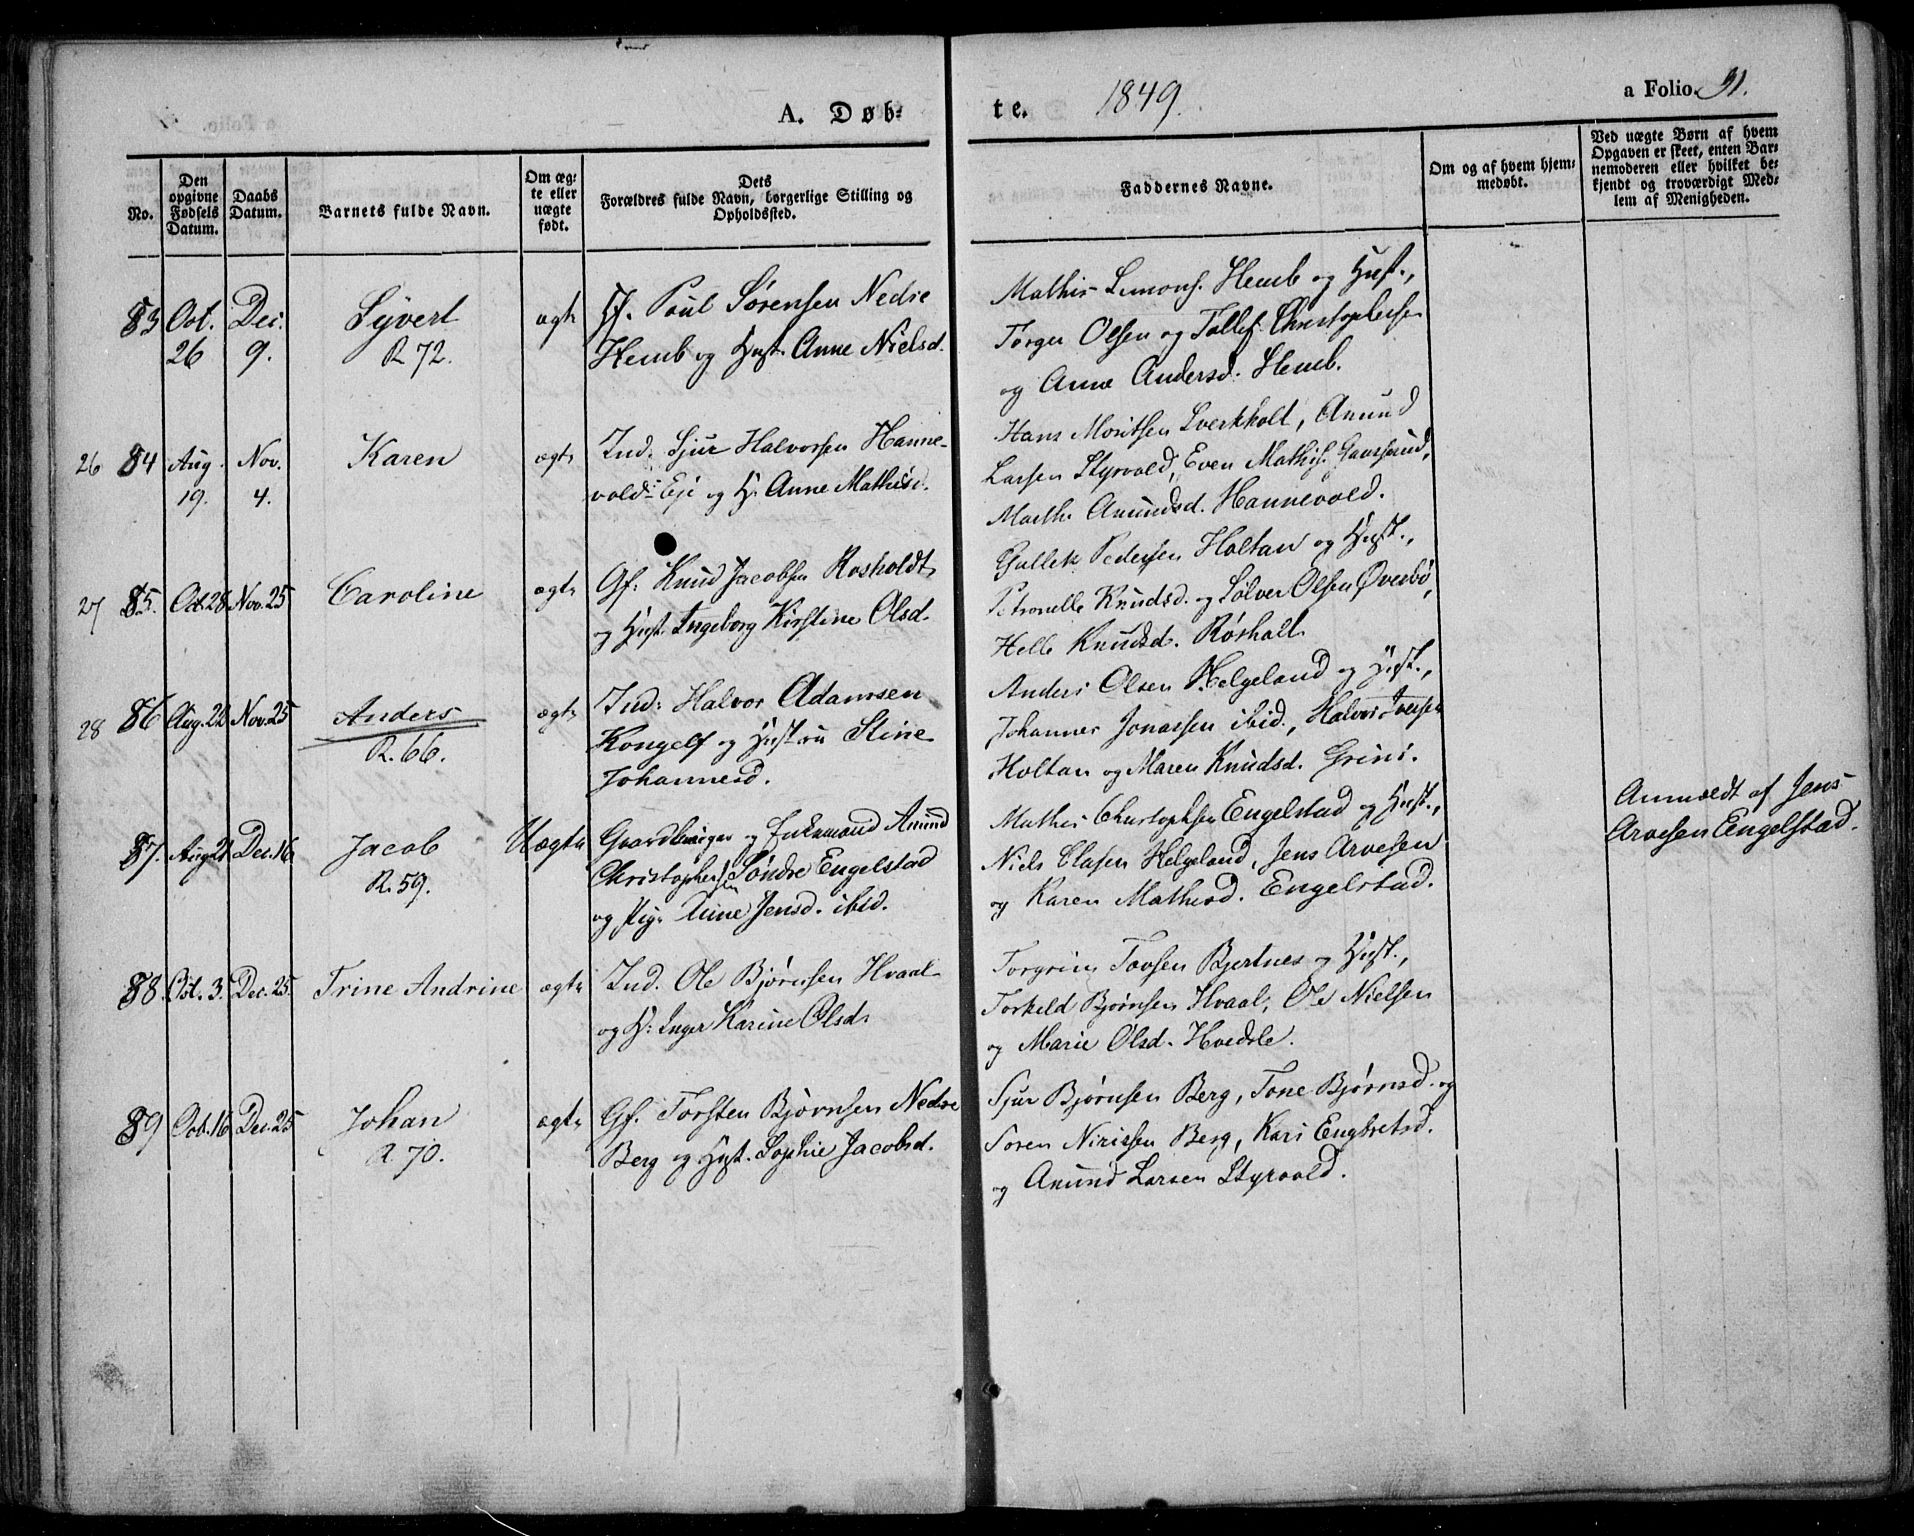 A. Døb-
te. 1849.
a Folio. 31.
No.
Den
opgivne
Fødsels
Datum.
Daabs
Datum.
Barnets fulde Navn.
Om æg-
te eller
uægte
født.
Dets
Forældres fulde Navn, borgerlige Stilling og
Opholdssted.
Faddernes Navne.
Om og af hvem hjem-
medøbt.
Ved uægte Børn af hvem
Opgaven er skeet, enten Bar-
nemoderen eller hvilket be-
kjendt og troværdigt Med-
lem af Menigheden.
83 Oct. Dec. Syvert ægte Gf. Poul Sørensen Nedre
26 9. R. 72. Hemb og Hust. Anne Nielsd.
Mathis Simons. Hemb og Hust.,
Torger Olsen og Tollef Christophersen
og Anne Andersd. Hemb.
26 84 Aug. Nov. Karen ægte Ind. Sjur Halvorsen Hanne-
19. 4. vold-Eje og H. Anne Mathisd.
Hans Moritsen Sverkholt, Anund
Larsen Styrvold, Even Mathis.
Marthe Anundsd. Hannevold.
27 85. Oct 28 Nov. 25 Caroline ægte Gf. Knud Jacobsen Rosholdt
og Hust. Ingeborg Kirstine Olsd.
Gullek Pedersen Holtan og Hust.,
Petronelle Knudsd. og Sølver Olsen Øverbø,
Helle Knudsd. Rosholt
28 86 Aug. 22 Nov. 25 Anders ægte Ind: Halvor Adamsen
R. 66. Kongelf og Hustru Stine
Johannesd.
Anders Olsen Helgeland og Hust.,
Johannes Jonassen ibid., Halvor Iversen
Holtan og Maren Knudsd. Grini.
87. Aug. 21 Dec. 16 Jacob Uægte Gaardbruger og Enkemand Anund
R. 59. Christophersen Søndre Engelstad
og Pige Anne Jensd. ibid.
Mathis Christophsen Engelstad og Hust.,
Niels Olafsen Helgeland, Jens Arvesen
og Karen Mathisd. Engelstad.
Anmeldt af Jens
Arvesen Engelstad.
88. Oct. 3. Dec. 25. Trine Andrine ægte Ind. Ole Bjørnsen Hvaal
og H: Inger Karine Olsd.
Torgrim Tovsen Bjertnes og Hust.,
Torkeld Bjørnsen Hvaal, Ole Nielsen
og Marie Olsd. Hvedsle.
89 Oct. 16 Dec. 25 Johan ægte Gf. Torsten Bjørnsen Nedre
R. 70. Berg og Hust. Sophie Jacobsd.
Sjur Bjørnsen Berg, Tone Bjørnsd. og
Søren Nirissen Berg, Kari Engbretsd.
og Anund Larsen Styrvold.